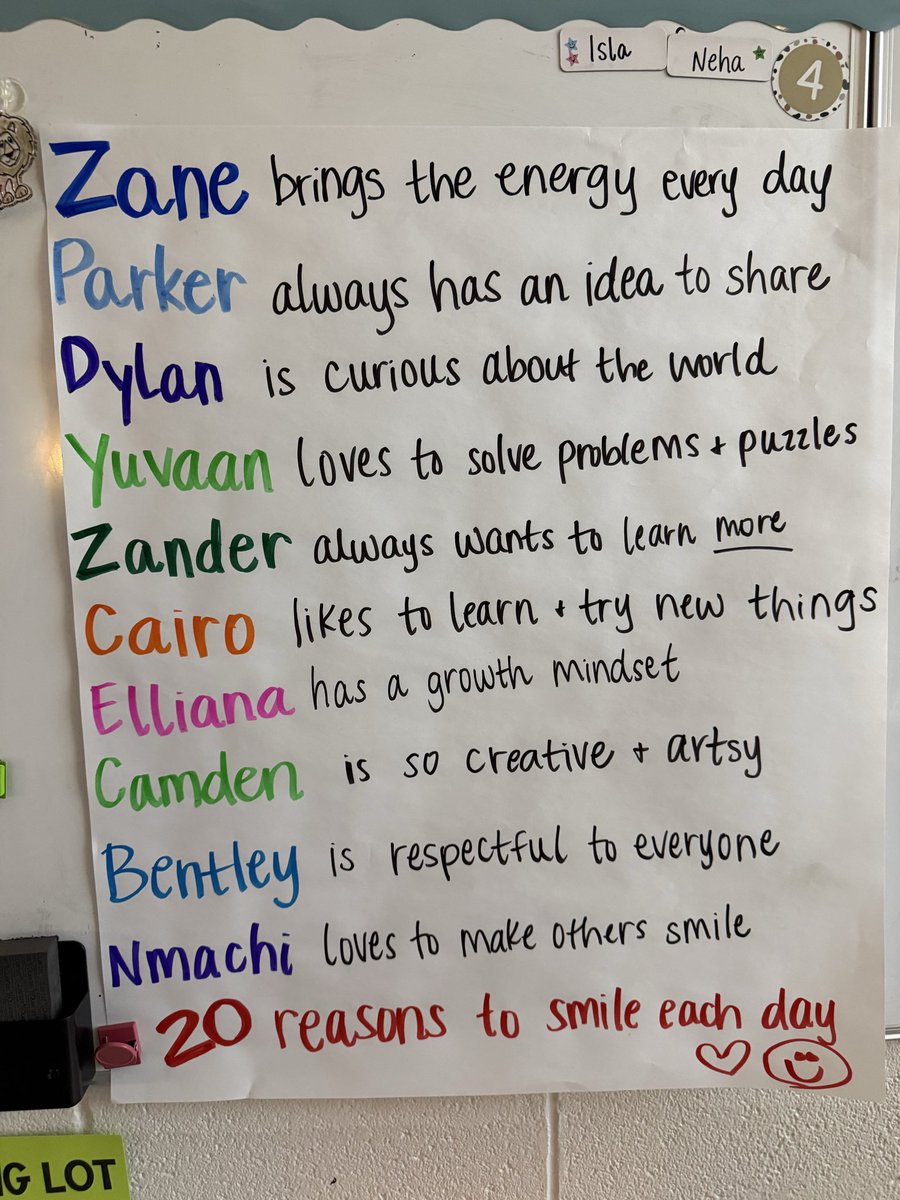 Isla
Neha
4
Zane brings the energy every day
Parker always has an idea to share
Dylan is curious about the world
Yuvaan loves to solve problems + puzzles
Zander always wants to learn more
Cairo likes to learn + try new things
Elliana has a growth mindset
Camden is so creative + artsy
Bentley is respectful to everyone
Nmachi loves to make others smile
20 reasons to smile each day
G LOT